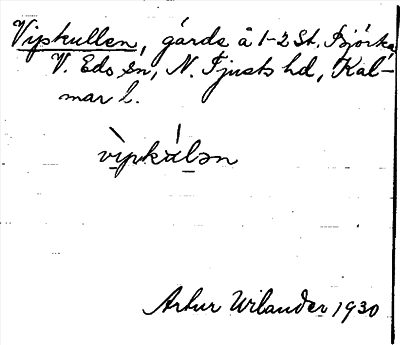 Vipkullen, gårds å 1-2 St. Björka,
V. Eds sn, N. Tjusts hd, Kal-
mar l.
vìpkálən
Artur Wilander 1930